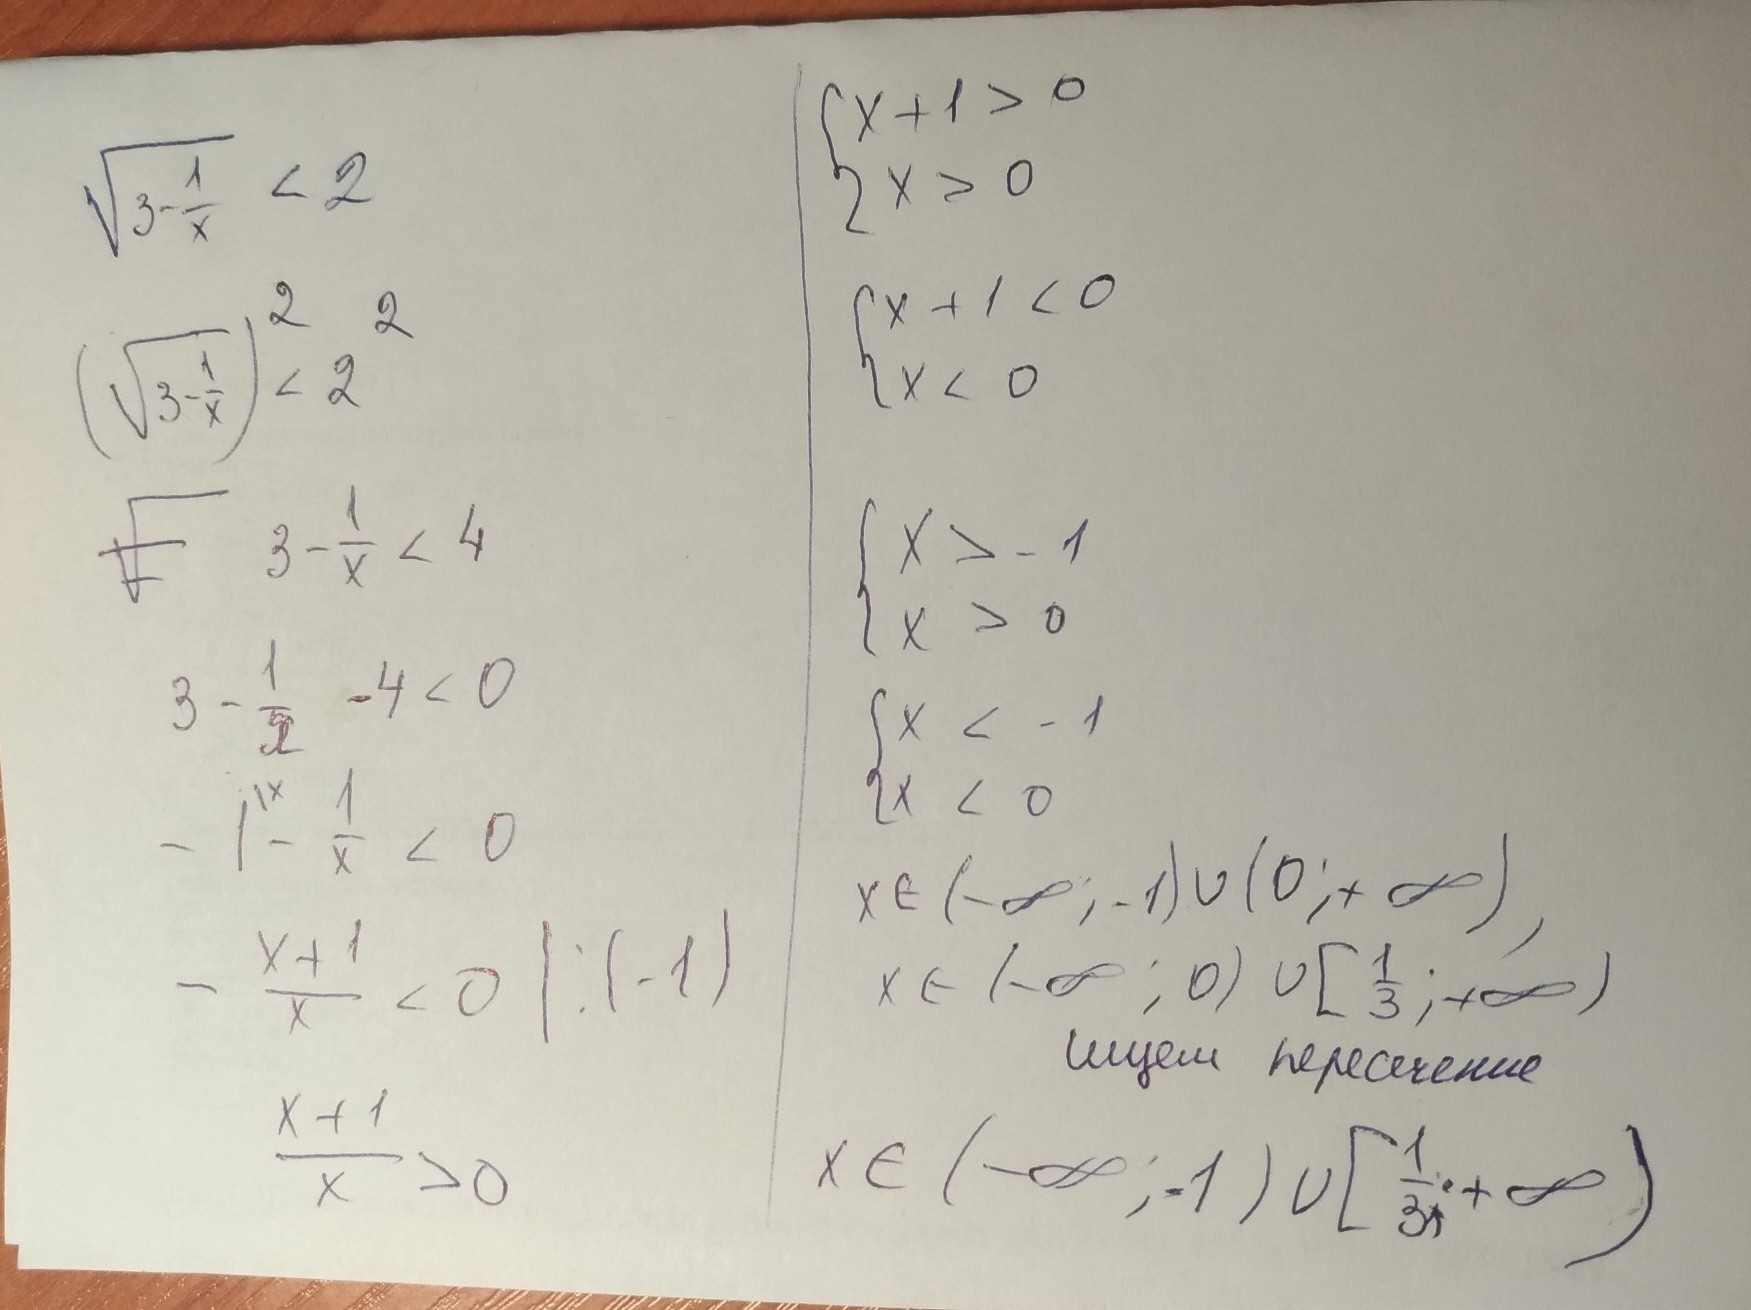 √(3-1/x) < 2
(√(3-1/x))² < 2²
3 - 1/x < 4
3 - 1/x - 4 < 0
- 1\x - 1/x < 0
- (x+1)/x < 0 | : (-1)
(x+1)/x > 0
{ x + 1 > 0
x > 0
{ x + 1 < 0
x < 0
{ x > -1
x > 0
{ x < -1
x < 0
x ∈ (-∞; -1) ∪ (0; +∞),
x ∈ (-∞; 0) ∪ [1/3; +∞)
ищем пересечение
x ∈ (-∞; -1) ∪ [1/3; +∞)